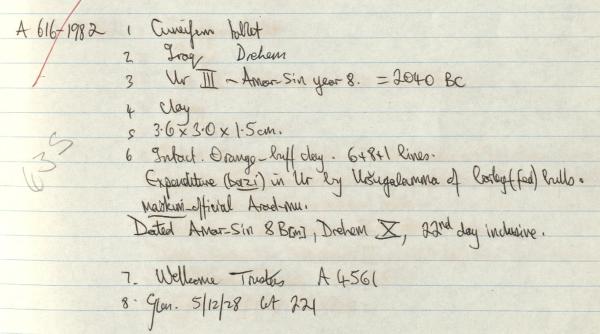 A 616-1982 1 Cuneiform tablet
2 Iraq Drehem
3 Ur III - Amar-Sin year 8. = 2040 BC
4 Clay
5 3.6 x 3.0 x 1.5cm.
6 Intact. Orange-buff clay. 6+8+1 lines.
Expenditure (bazi) in Ur by of (fed) bulls.
maskim-official Arad-mu.
Dated Amar-Sin 8 B[m], Drehem X, 22nd day inclusive.
635
7. Wellcome Trustees A 4561
8. 5/12/28 221